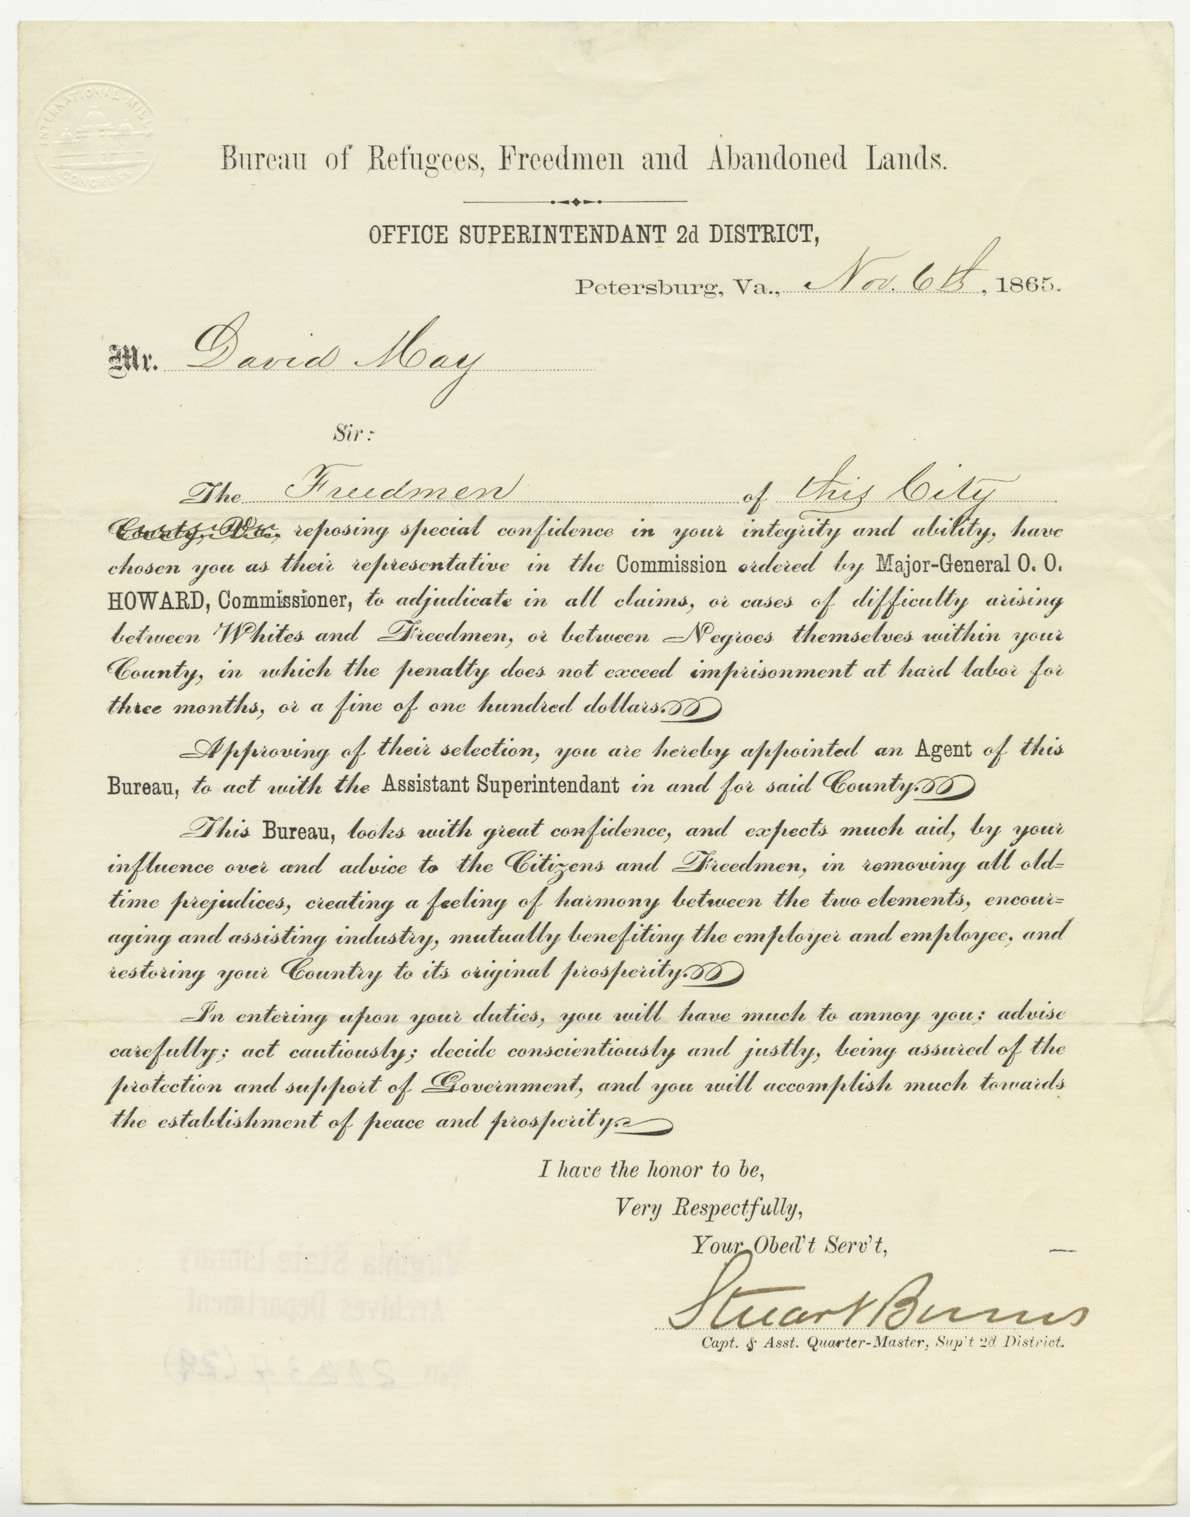 INTERNATIONAL MILLS
CONGRESS
Bureau of Refugees, Freedmen and Abandoned Lands.
OFFICE SUPERINTENDANT 2d DISTRICT,
Petersburg, Va., Nov. 6th, 1865.
Mr. David May
Sir:
The Freedmen of this City
County, Va., reposing special confidence in your integrity and ability, have
chosen you as their representative in the Commission ordered by Major-General O. O.
HOWARD, Commissioner, to adjudicate in all claims, or cases of difficulty arising
between Whites and Freedmen, or between Negroes themselves within your
County, in which the penalty does not exceed imprisonment at hard labor for
three months, or a fine of one hundred dollars.
Approving of their selection, you are hereby appointed an Agent of this
Bureau, to act with the Assistant Superintendant in and for said County.
This Bureau, looks with great confidence, and expects much aid, by your
influence over and advice to the Citizens and Freedmen, in removing all old-
time prejudices, creating a feeling of harmony between the two elements, encour-
aging and assisting industry, mutually benefiting the employer and employee, and
restoring your Country to its original prosperity.
In entering upon your duties, you will have much to annoy you; advise
carefully; act cautiously; decide conscientiously and justly, being assured of the
protection and support of Government, and you will accomplish much towards
the establishment of peace and prosperity.
I have the honor to be,
Very Respectfully,
Your Obed't Serv't,
Stuart Barnes
Capt. & Asst. Quarter-Master, Sup't 2d District.
Virginia State Library
Archives Department